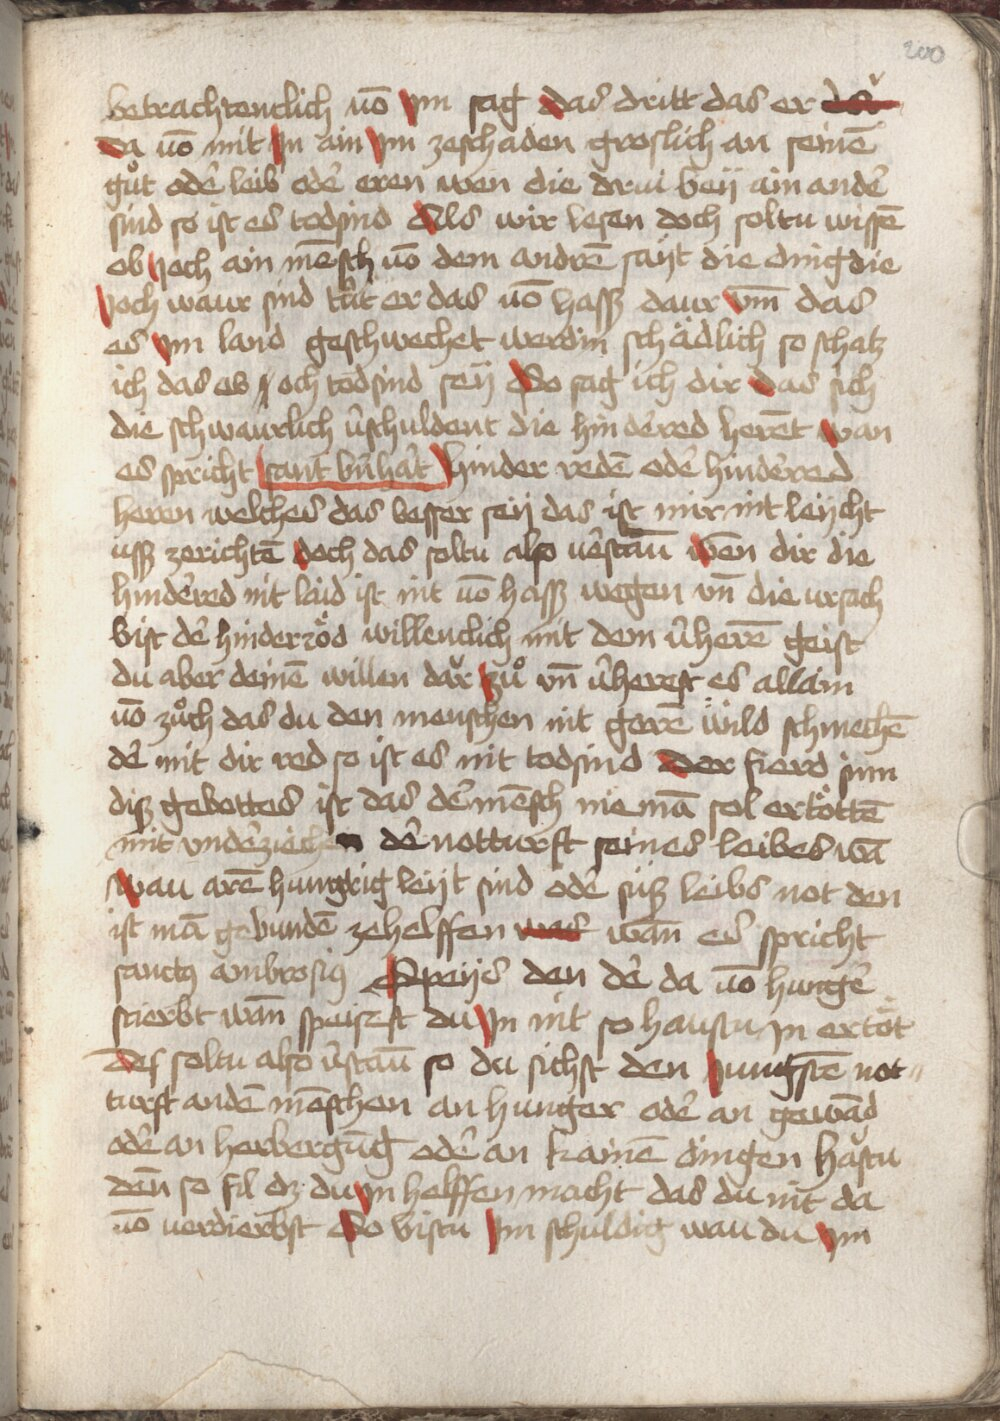 200
betrachtenclich uō ym sag das dritt das er
da uō mit yn ain ym zeschaden groslich an seinē
gůt odē leib odē eren wen die drui beÿ ain andē
sind so ist es todsind Als wir lesen doch soltu wissē
ob joch ain mēsch uō dem andrē saÿt die ding die
joch waur sind tůt er das uō hassz daur vm̄ das
es ym land geschwechet werdin schädlich so schatz
ich das es joch todsind seÿ So sag ich dir das sich
die schwaurlich v̄schuldent die hindēred herēt wan
es spricht sant bn̄hāt hinder redē odē hindēred
heren welches das besser seÿ das ist mir nit leÿcht
ussz zerichtē doch das soltu also uēstaū wēn dir die
hindēred nit laid ist nit uō hassz wegen vn̄ die ursach
bist dē hinderrŏd willenclich mit dem v̄herē geist
du aber deinē willen dar zů vn̄ v̄herest es allain
uō zůch das du den menschen nit gerē wild schmechē
dē mit dir red so ist es nit todsind Der fierd sinn
disz gebottes ist das dē mēsch niemā sol ertöttē
mit vndēziechen dē notturft seines leibes wā
wau arē hungrig leÿt sind odē susz leibs not den
ist mā gebundē zehelffen wān es spricht
sanctꝰ ambrosiꝰ Speÿs den dē da uō hungē
stierbt wān speisest du yn nit so haustu yn ertöt
Des soltu also v̄staū so du sichst den jungstē not=
turft andē mēschen an hunger odē an gewād
odē an herbergūg odē an kainē dingen hăstu
dēn so fil dz du ym helffen macht das du nit da
uō uerdierbst So bistu ym schuldig wau du ym